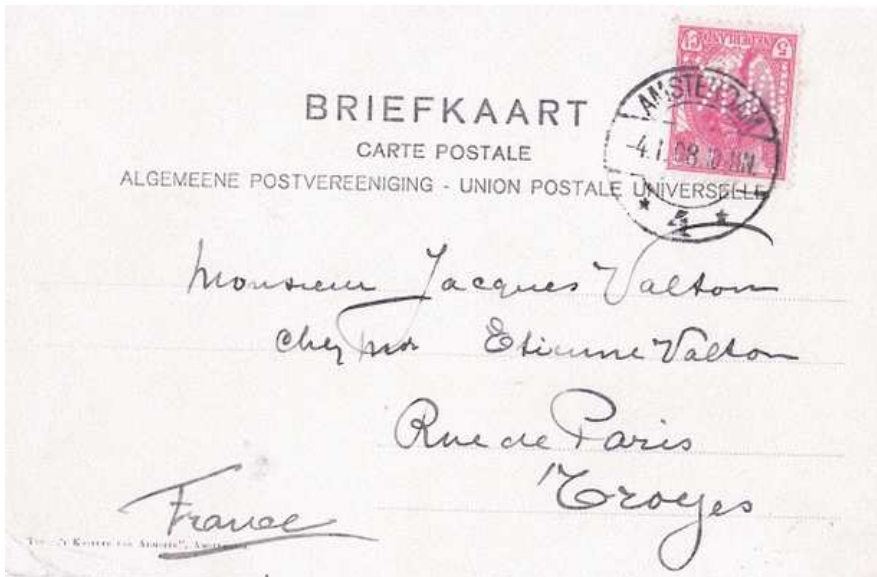 5 NEDERLAND Ct
BRIEFKAART
CARTE POSTALE
ALGEMEENE POSTVEREENIGING - UNION POSTALE UNIVERSELLE
AMSTERDAM
-4.1.08.
* 4 *
Monsieur Jacques Valton
chez Mr Etienne Valton
Rue de Paris
Troyes
France